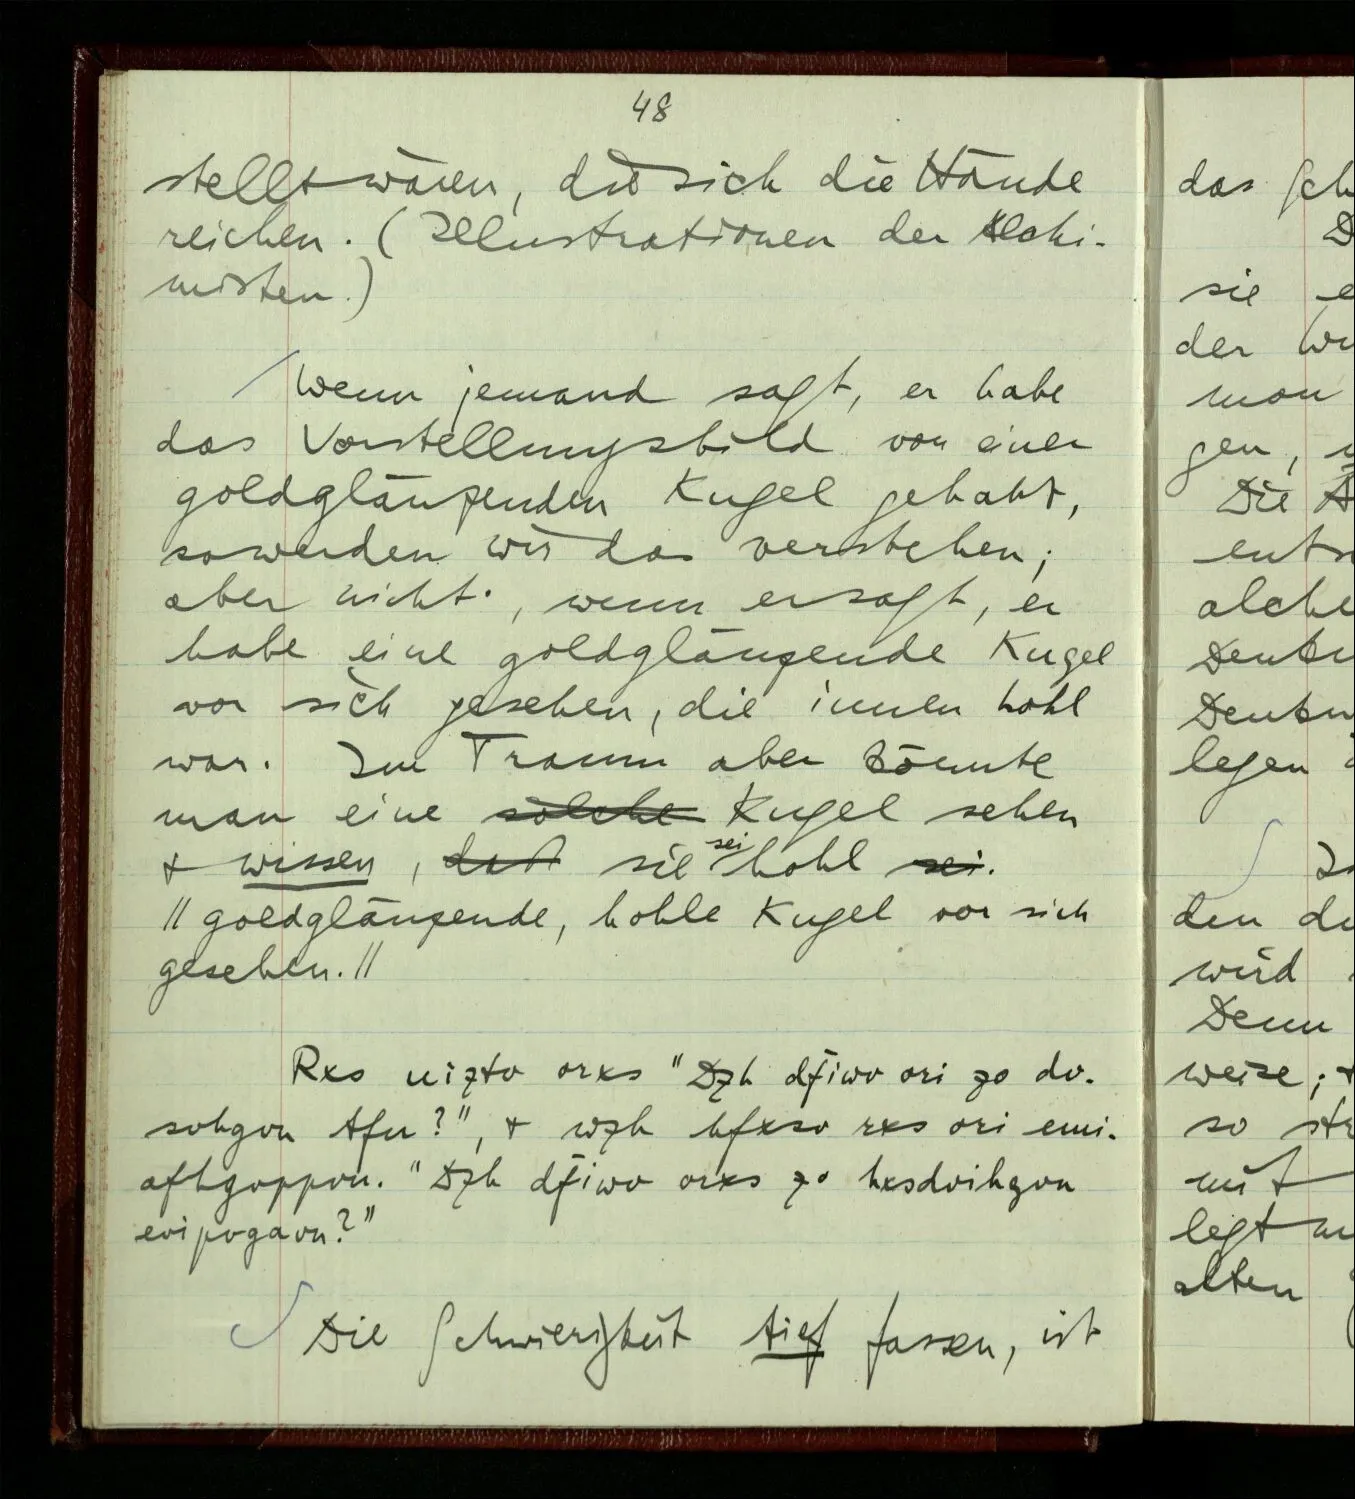 48
stellt wären, die sich die Hände
reichen. (Illustrationen der Alchi-
misten.)
Wenn jemand sagt, er habe
das Vorstellungsbild von einer
goldglänzenden Kugel gehabt,
so werden wir das verstehen;
aber nicht, wenn er sagt, er
habe eine goldglänzende Kugel
vor sich gesehen, die innen hohl
war. Im Traum aber könnte
man eine solche Kugel sehen
& wissen, daß sie sei hohl sei.
|| goldglänzende, hohle Kugel vor sich
gesehen. ||
Rxs uiztv orxs "Dzh dfïwv ori zo dv-
svhgvn gfn?", & wzh hfxsv rxs ori emi-
afhgvppvn. "Dzh dfïwv orxs zo hxsdvihgvn
evipvgavn?"
Die Schwierigkeit tief fassen, ist
das Sch
sie
der
man
gen,
Die
Denk
legen
den
wird
Denn
weise;
so
mit
legt
alten